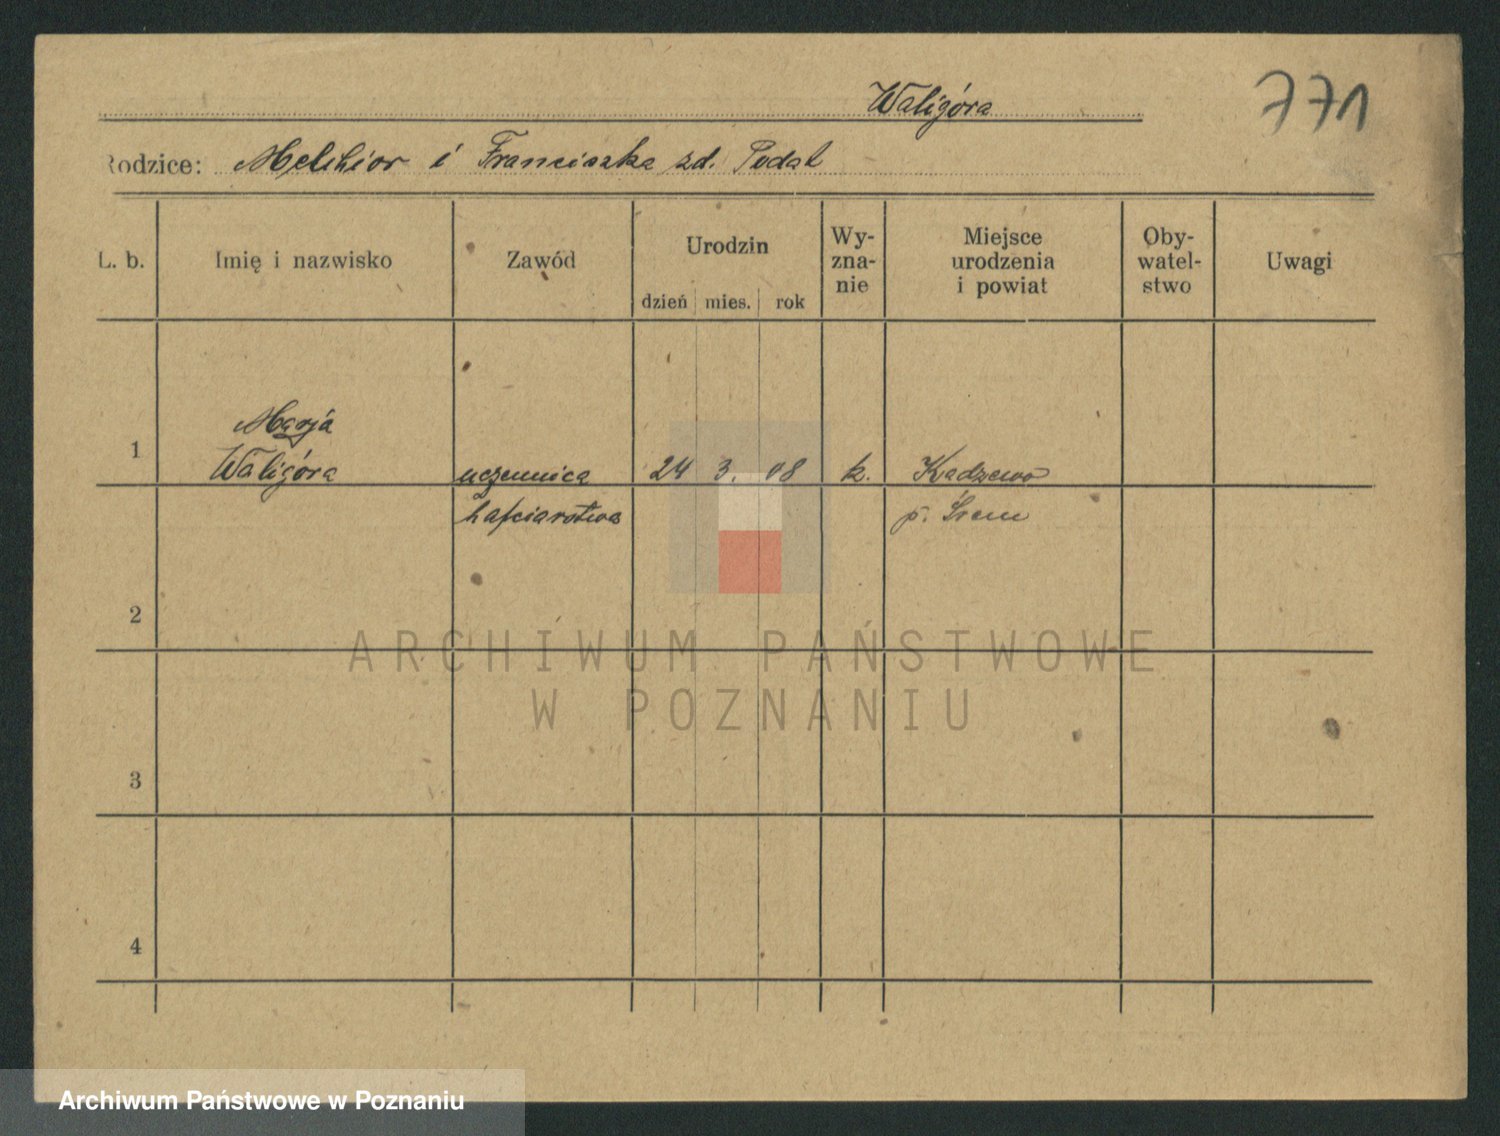 Waligóra
771
Rodzice: Melchior i Franciszka zd. Podat
L. b.
Imię i nazwisko
Zawód
Urodzin
dzień mies. rok
Wy-
zna-
nie
Miejsce
urodzenia
i powiat
Oby-
watel-
stwo
Uwagi
1
Marja
Waligóra
uczennica
hafciarstwa
24 3. 08
k.
Kadzewo
p. Śrem
2
3
4
ARCHIWUM PAŃSTWOWE
W POZNANIU
Archiwum Państwowe w Poznaniu